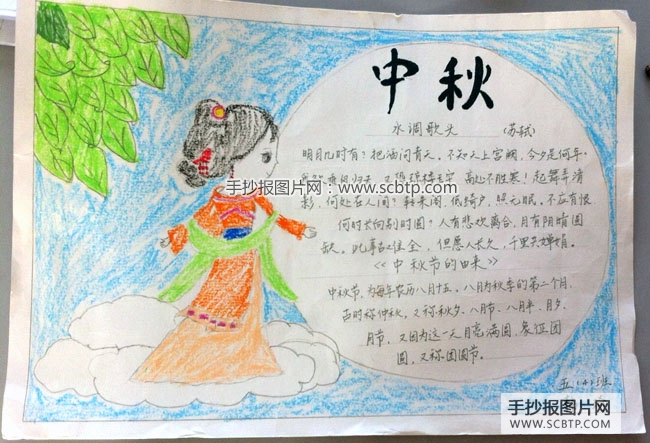 中秋
水调歌头 (苏轼)
明月几时有？把酒问青天。不知天上宫阙，今夕是何年。
手抄报图片网：www.scbtp.com
高处不胜寒！起舞弄清
影，何处在人间？转朱阁，低绮户，照无眠。不应有恨
何时长向别时圆？人有悲欢离合，月有阴晴圆
缺。此事古难全，但愿人长久，千里共婵娟。
《中秋节的由来》
中秋节，为每年农历八月十五。八月为秋季的第二个月，
古时称仲秋，又称秋夕、八月节、八月半、月夕、
月节，又因为这一天月亮满圆，象征团
圆，又称团圆节。
五（4）班
手抄报图片网
WWW.SCBTP.COM